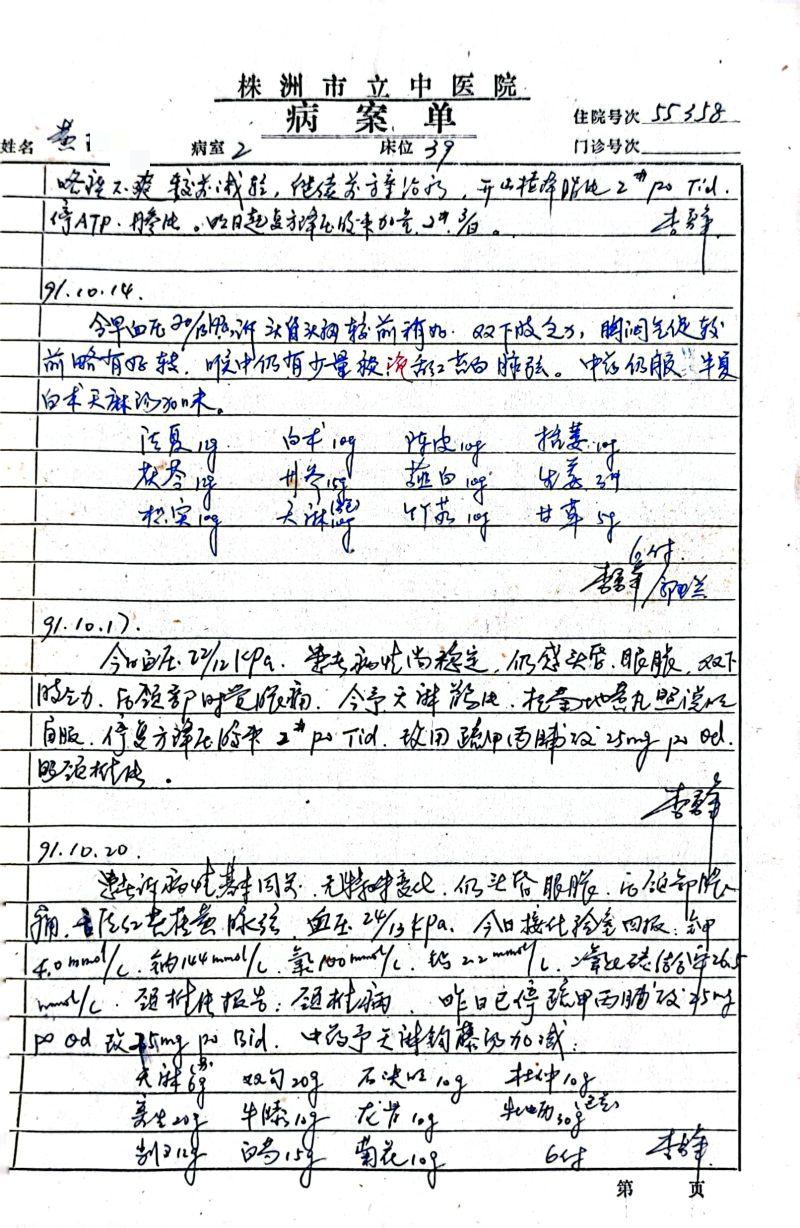 株洲市立中医院
病案单
住院号次 55358
姓名 黄 病室 2 床位 39 门诊号次
继续 方 治疗,开山楂降脂片 2# po Tid.
停ATP.丹参片。明日起复方降压胶束加量 2# 3/日。
91.10.14.
今早血压 头昏头痛较前稍好.双下肢乏力,胸闷气促较
前略有好转.喉中仍有少量 痰 红苔白脉弦。中药仍服 半夏
白术天麻汤加味。
法夏12g 白术10g 陈皮10g 括蒌10g
茯苓12g 丹参15g 薤白10g 生姜3片
枳实10g 天麻10g 竹茹10g 甘草5g
6付
91.10.17.
今日血压22/12KPa.患者病情尚稳定,仍感头昏.眼胀.双下
肢乏力.后颈部时觉胀痛.今予天麻 片.杞菊地黄丸照说明
自服.停复方降压胶束 2# po Tid.改用巯甲丙脯酸25mg po Od.
照颈椎片。
91.10.20.
患者诉病情基本同前.无特殊变化.仍头昏眼胀.后颈部胀
痛.舌 红 苔黄脉弦.血压24/13KPa.今日接化验室回报:钾
4.0mmol/L.钠144mmol/L.氯100mmol/L.钙2.2mmol/L.二氧化碳结合率26.5
mmol/L.颈椎片报告:颈椎病.昨日已停巯甲丙脯酸25mg
po Od 改25mg po Bid.中药予天麻钩藤汤加减:
天麻6g 双勾20g 石决明10g 杜仲10g
寄生20g 牛膝10g 龙骨10g 牡蛎30g
12g 白芍15g 菊花10g 6付
第 页